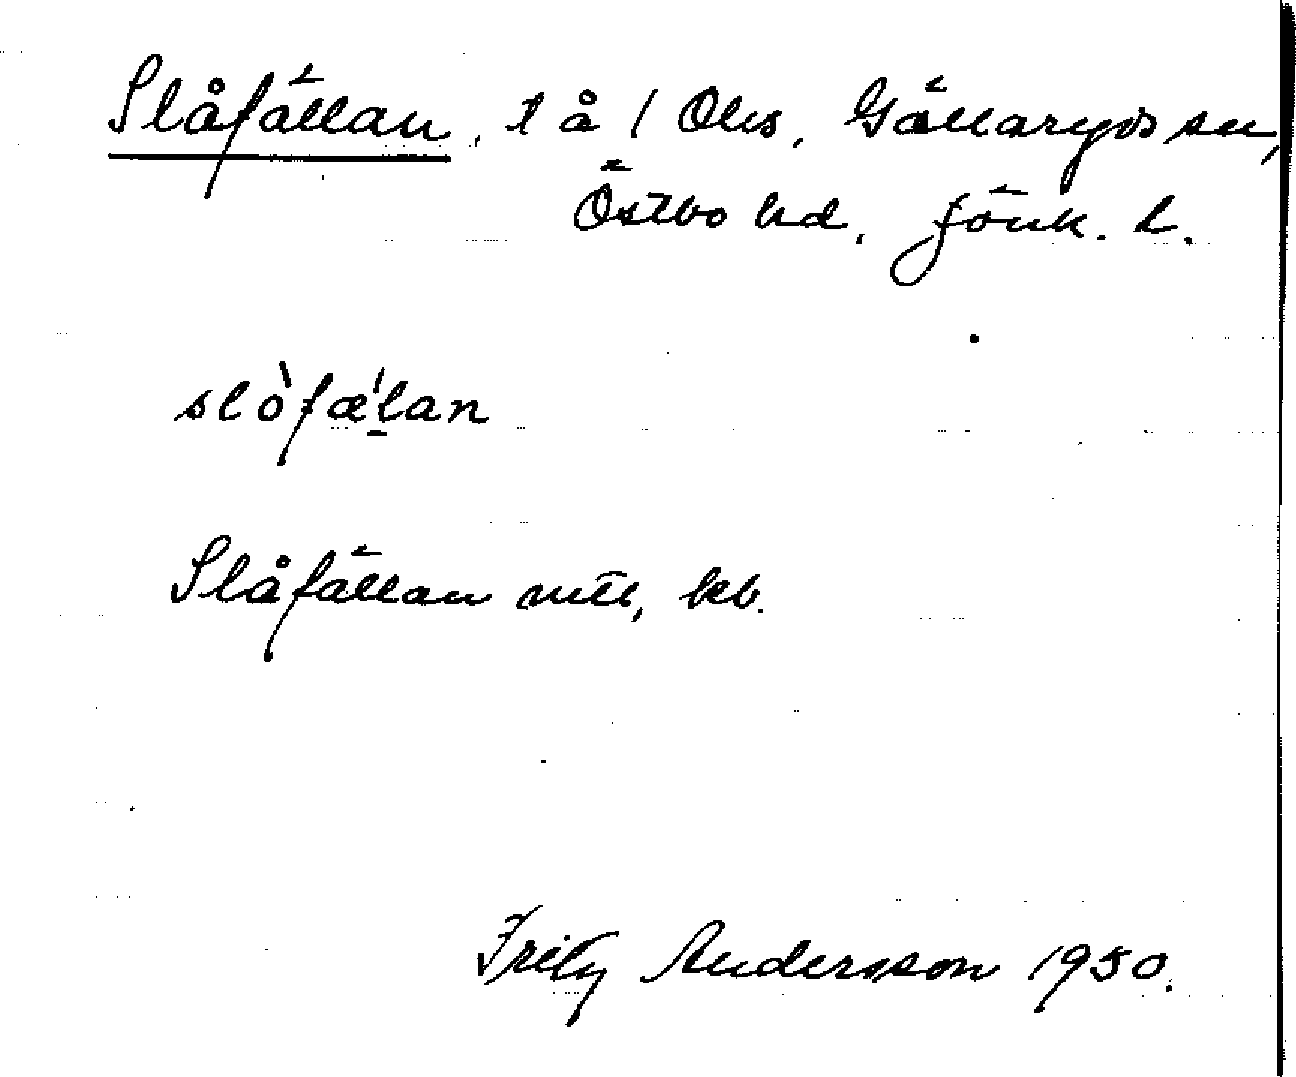 Slåfällan, t å / Ohs, Gällaryds sn,
Östbo hd, Jönk. l.
slòfæ'lan
Slåfällan mtl, kb.
Fritz Andersson 1930.